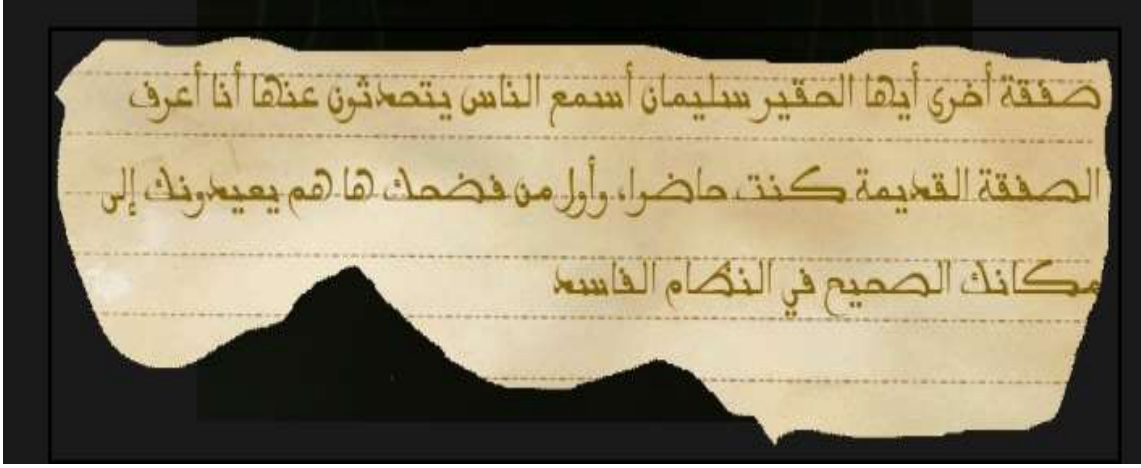 صفقة أخرى أيها الحقير سليمان أسمع الناس يتحدثون عنها أنا أعرف
الصفقة القديمة كنت حاضرا، وأول من فضحك ها هم يعيدونك إلى
مكانك الصحيح في النظام الفاسد